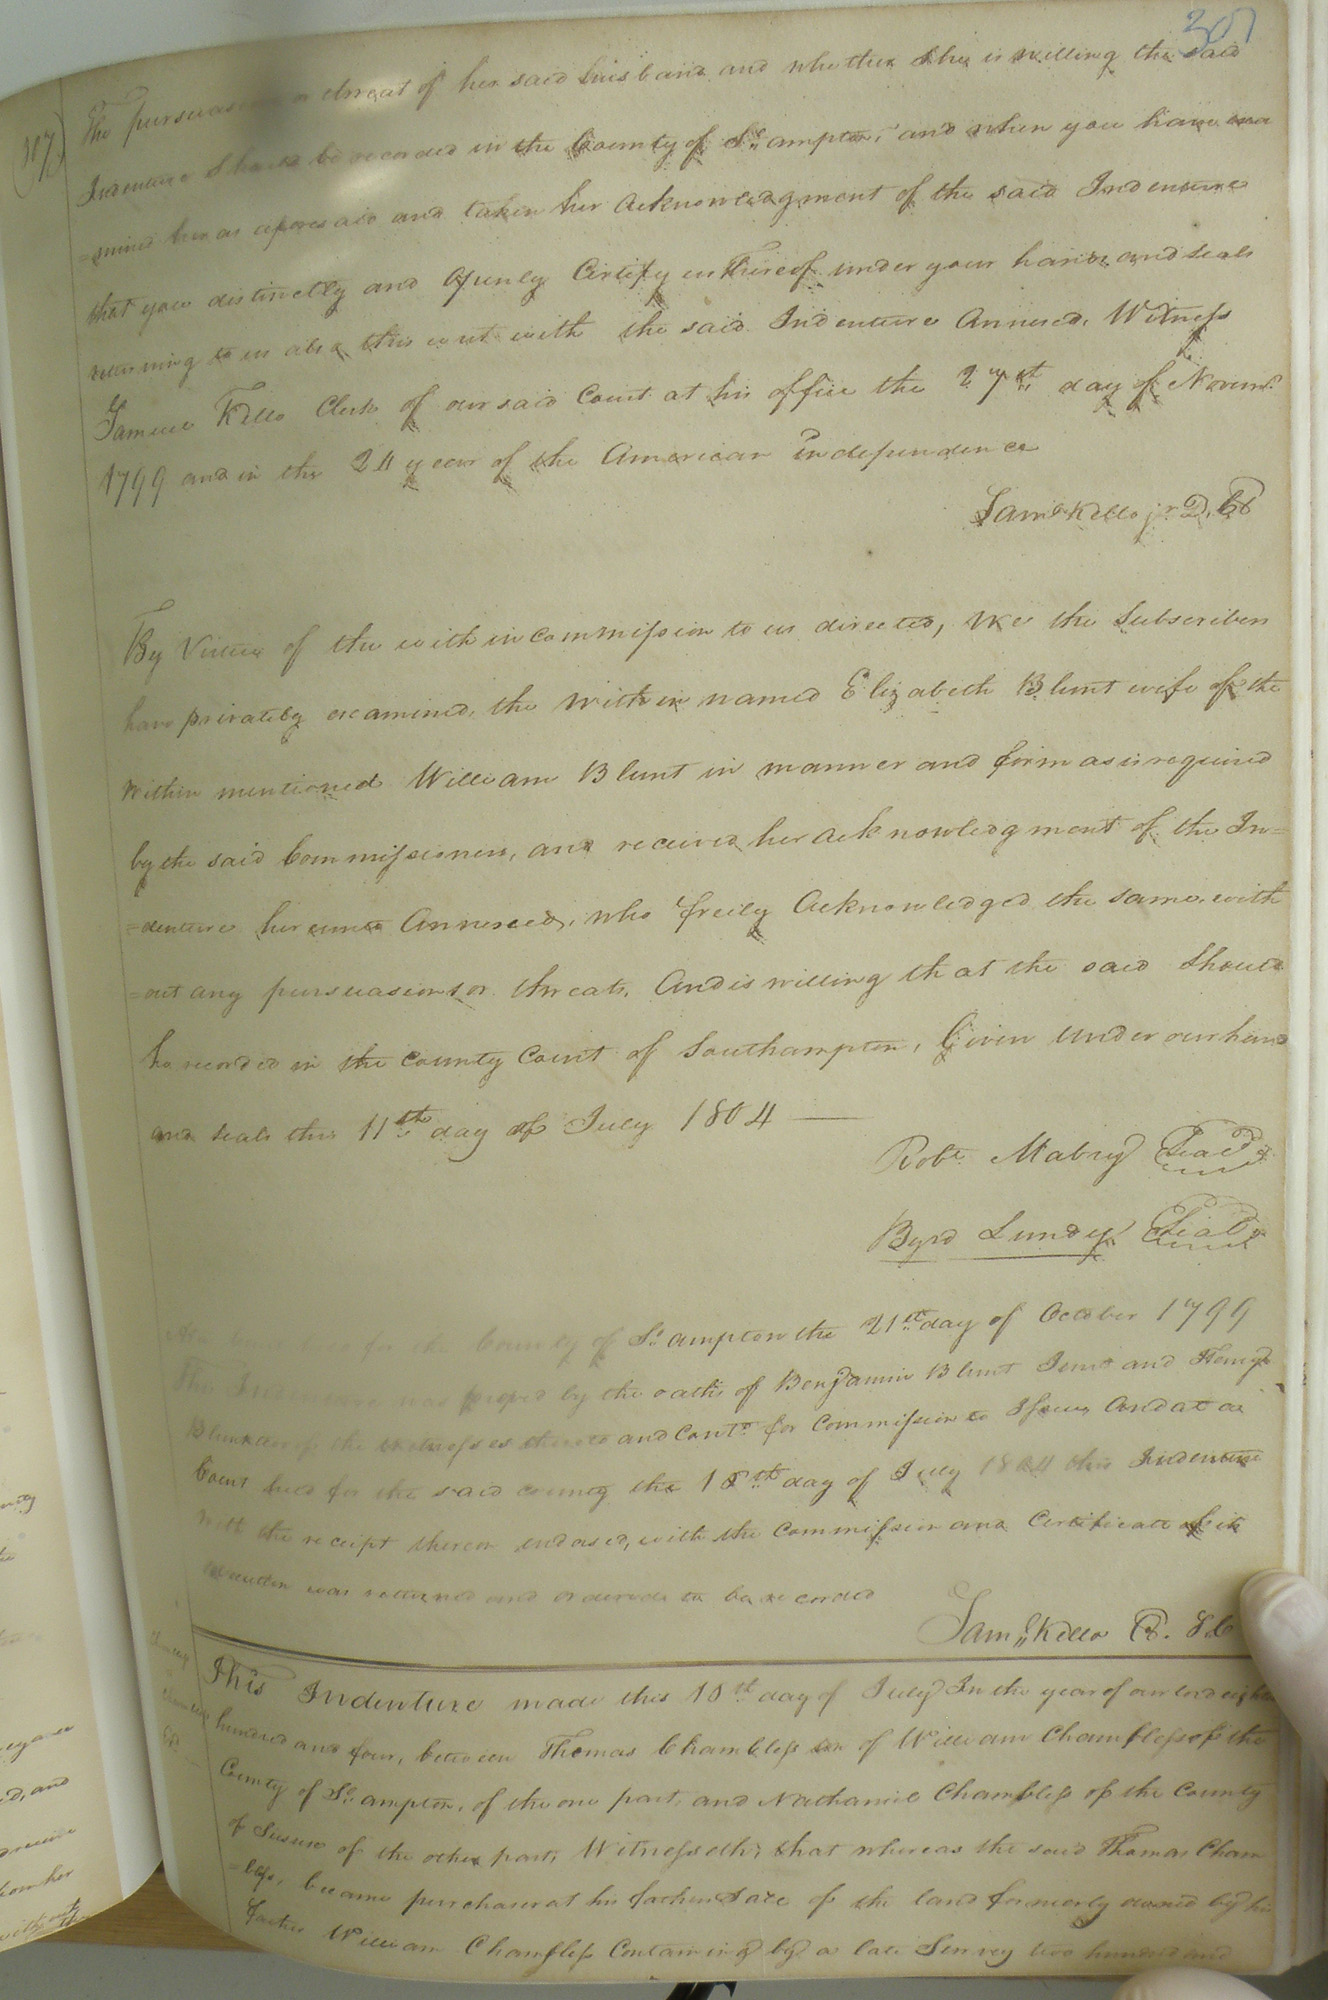 307
(117)
The persuasion or threat of her said husband and whether she is willing the said
Indenture should be recorded in the County of So:ampton, and when you have exa
=mined her as aforesaid and taken her acknowledgment of the said Indenture
that you distinctly and openly Certify us thereof under your hands and seals
returning to us also this writ with the said Indenture Annexed. Witness
Samuel Kello Clerk of our said Court at his office the 27th day of Novemr.
1799 and in the 24 year of the American independence
Saml Kello jr D. Ck
By Virtue of the within commission to us directed, We the Subscribers
have privately examined, the within named Elizabeth Blunt wife of the
within mentioned William Blunt in manner and form as is required
by the said Commissioners, and received her acknowledgment of the In=
=denture hereunto Annexed, who freely Acknowledged the same, with
=out any persuasions or threats, And is willing that the said Should
be recorded in the County Court of Southampton, Given under our hand
and seals this 11th day of July 1804
Robt. Mabry Seal
Byrd Lundy Seal
held for the County of So:ampton the 21st day of October 1799
This Indenture was proved by the oaths of Benjamin Blunt Junr and Henry
Blunt the witnesses thereto and Contd. for Commission to Issue, And at a
Court held for the said county the 16th day of July 1804 this Indenture
with the receipt thereon endorsed, with the Commission and Certificate of its
execution was returned and ordered to be recorded
Saml. Kello C. S C
This Indenture made this 10th day of July In the year of our lord eighteen
hundred and four, between Thomas Chambless son of William Chambless of the
County of So:ampton, of the one part, and Nathaniel Chambless of the County
of Sussex of the other part, Witnesseth; that whereas the said Thomas Cham
=bless, became purchaser at his fathers Sale of the land formerly owned by his
father William Chambless Containing by a late Survey two hundred and